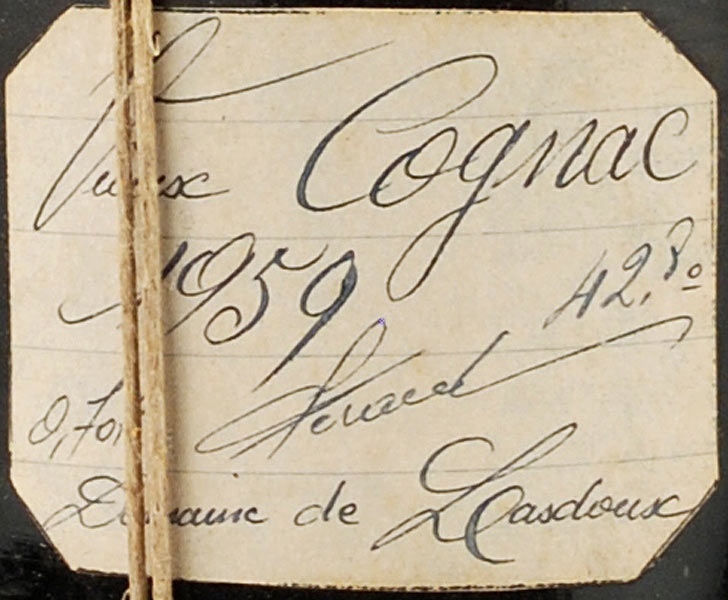 Vieux Cognac
1959 42.8º
0,70
Domaine de Lasdoux